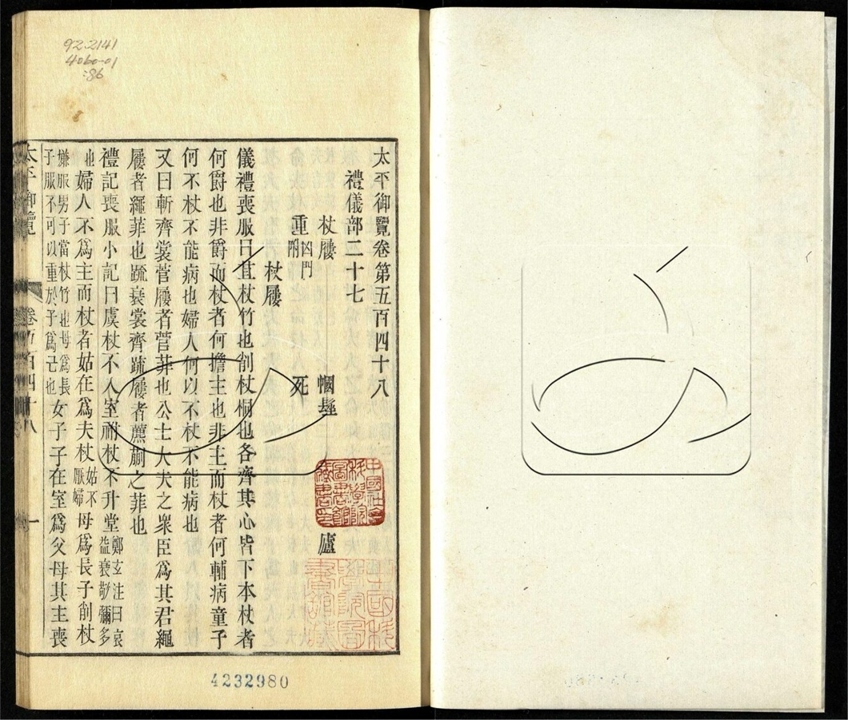 92-2141
4060-01
:86
太平御覽卷第五百四十八
禮儀部二十七
杖屨 惆髽 廬
重凶門附 死
杖屨
儀禮喪服曰苴杖竹也削杖桐也各齊其心皆下本杖者
何爵也非爵而杖者何擔主也非主而杖者何輔病童子
何不杖不能病也婦人何以不杖不能病也
又曰斬齊裳菅屨者菅菲也公士大夫之衆臣爲其君繩
屨者繩菲也疏衰裳齊疏屨者藨蒯之菲也
禮記喪服小記曰虞杖不入室祔杖不升堂鄭玄注曰哀益衰敬彌多
也婦人不爲主而杖者姑在爲夫杖姑不厭婦母爲長子削杖
嫌服男子當杖竹也母爲長子服不可以重於子爲己也女子子在室爲父母其主喪
太平御覽 卷五百四十八 一
4232980